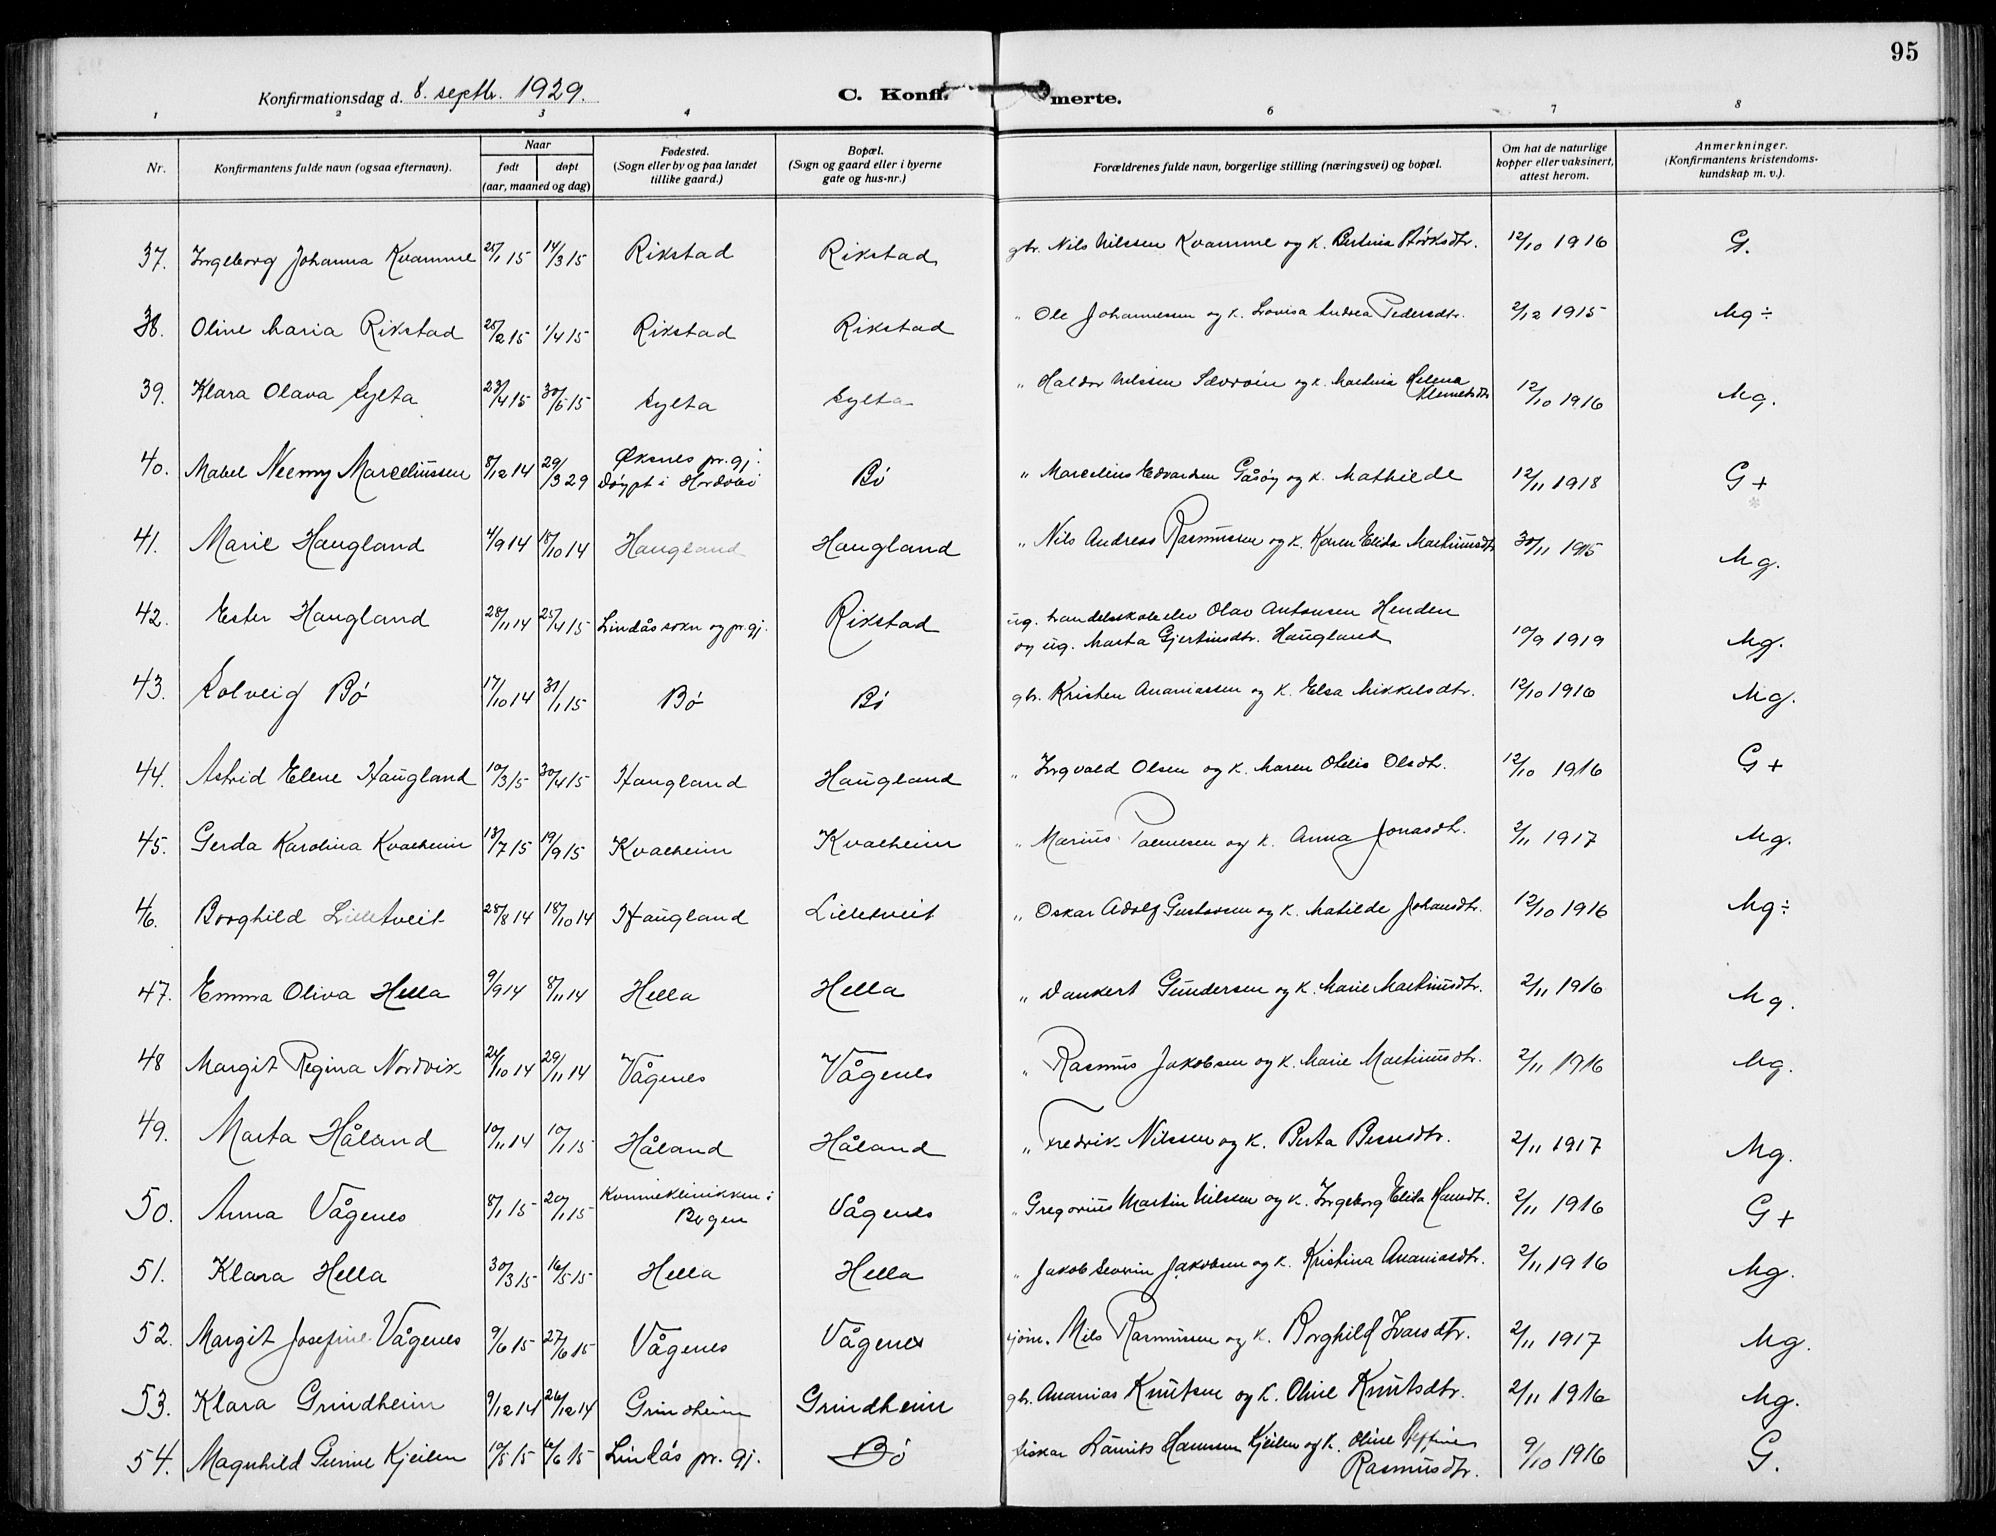 95
Konfirmationsdag d. 8. septbr. 1929. C. Konfi merte.
1 2 3 4 5 6 7 8
Nr. Konfirmantens fulde navn (ogsaa efternavn). Naar født døpt (aar, maaned og dag) Fødested. (Sogn eller by og paa landet tillike gaard.) Bopæl. (Sogn og gaard eller i byerne gate og hus-nr.) Forældrenes fulde navn, borgerlige stilling (næringsvei) og bopæl. Om hat de naturlige kopper eller vaksinert, attest herom. Anmerkninger. (Konfirmantens kristendoms-kundskap m. v.).
37. Ingeborg Johanna Kvamme 25/1 15 14/3 15 Rikstad Rikstad gbr. Nils Nilssen Kvamme og K. Bertina Størksdtr. 12/10 1916 G.
38. Oline Maria Rikstad 25/2 15 1/4 15 Rikstad Rikstad " Ole Johannessen og K. Lovisa Andrea Pedersdtr. 2/12 1915 Mg ÷
39. Klara Olava Sylta 23/4 15 30/5 15 Sylta Sylta " Haldor Nilssen Sævrøin og K. Martina Helena Klemetsdtr 12/10 1916 Mg.
40. Mabel Neemy Marceliussen 8/12 14 29/3 29 Øksnes pr.gj. Døypt i Hordabø Bø " Marcelius Edvardsen Gåsøy og K. Mathilde 12/11 1918 G +
41. Marie Haugland 4/9 14 18/10 14 Haugland Haugland " Nils Andreas Rasmussen og K. Karen Elida Martinusdtr 30/11 1915 Mg.
42. Ester Haugland 28/11 14 25/4 15 Lindås sokn og pr.gj. Rikstad ug. handelsskoleelev Olav Antonsen Henden
og ug. Marta Gjertinsdtr. Haugland 10/9 1919 Mg.
43. Solveig Bø 17/10 14 31/1 15 Bø Bø gbr. Kristen Ananiassen og K. Elsa Mikkelsdtr. 12/10 1916 Mg.
44. Astrid Elene Haugland 10/3 15 30/4 15 Haugland Haugland " Ingvald Olsen og K. Maren Otelie Olsdtr. 12/10 1916 G +
45. Gerda Karolina Kvalheim 13/7 15 19/9 15 Kvalheim Kvalheim " Marius Palmesen og K. Anna Jonasdtr. 2/11 1917 Mg.
46. Borghild Lilletveit 28/8 14 18/10 14 Haugland Lilletveit " Oskar Adolf Gustavsen og K. Matilde Johansdtr. 12/10 1916 Mg ÷
47. Emma Oliva Hella 9/9 14 8/11 14 Hella Hella " Dankert Gundersen og K. Marie Martinusdtr. 2/11 1916 Mg.
48 Margit Regina Nordvik 26/10 14 29/11 14 Vågenes Vågenes " Rasmus Jakobsen og K. Marie Martinusdtr. 2/11 1916 Mg.
49. Marta Håland 10/11 14 10/1 15 Håland Håland " Fredrik Nilssen og K. Berta Berntsdtr. 2/11 1917 Mg.
50. Anna Vågenes 8/1 15 20/1 15 Kvinneklinikken i Bergen Vågenes " Gregorius Martin Nilssen og K. Ingeborg Elida Hansdtr. 2/11 1916 G +
51. Klara Hella 30/3 15 16/5 15 Hella Hella " Jakob Severin Jakobsen og K. Kristina Ananiasdtr. 2/11 1916 Mg.
52. Margit Josefine Vågenes 9/6 15 27/6 15 Vågenes Vågenes sjöm. Nils Rasmussen og K. Borghild Ivarsdtr. 2/11 1917 Mg.
53. Klara Grindheim 9/12 14 26/12 14 Grindheim Grindheim gbr. Ananias Knutsen og K. Oline Knutsdtr. 2/11 1916 Mg.
54. Magnhild Gurine Kjeilen 10/5 15 6/6 15 Lindås pr. gj. Bø fiskar Laurits Hanssen Kjeilen og K. Oline Rasmusdtr. 9/10 1916 G.